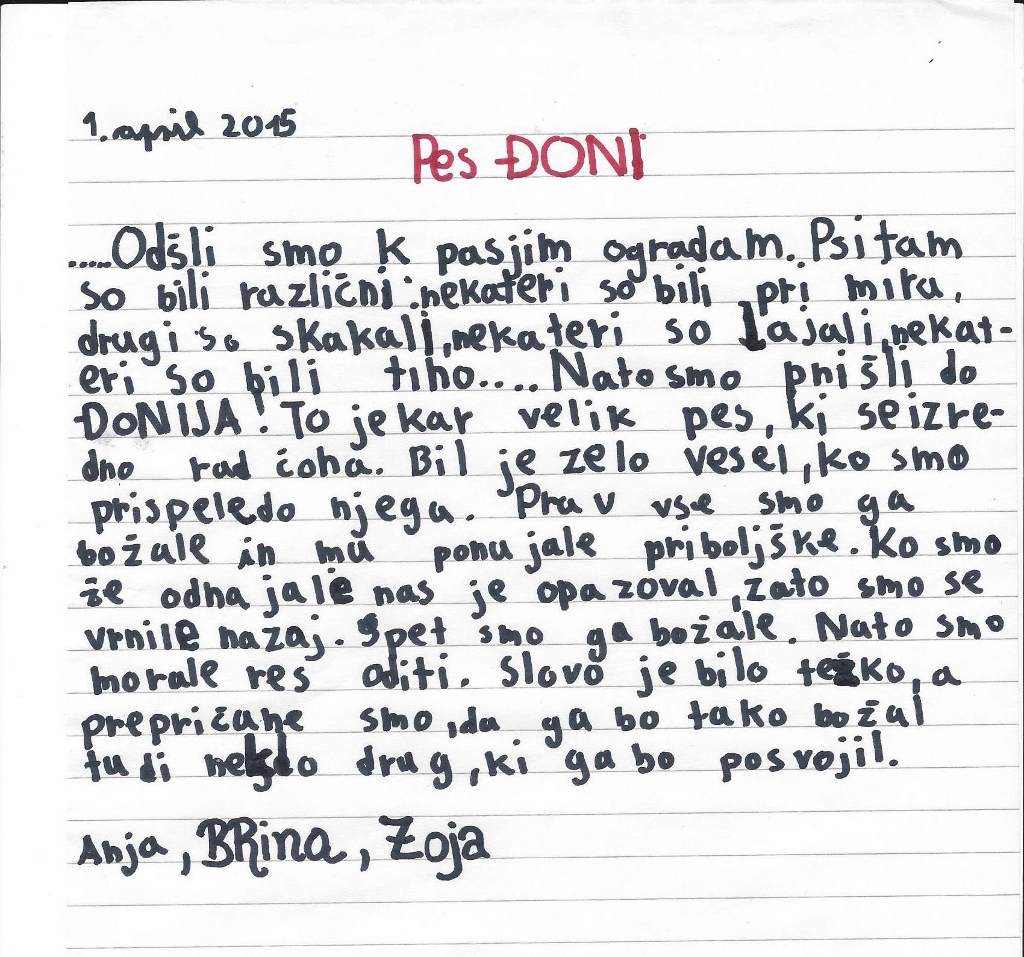 1. april 2015
Pes ĐONI
.....Odšli smo k pasjim ogradam. Psi tam
so bili različni: nekateri so bili pri miru,
drugi so skakali, nekateri so lajali, nekat-
eri so bili tiho.... Nato smo prišli do
ĐONIJA! To je kar velik pes, ki se izre-
dno rad čoha. Bil je zelo vesel, ko smo
prispele do njega. Prav vse smo ga
božale in mu ponujale priboljške. Ko smo
že odhajale nas je opazoval, zato smo se
vrnile nazaj. Spet smo ga božale. Nato smo
morale res oditi. Slovo je bilo težko, a
prepričane smo, da ga bo tako božal
tudi nekdo drug, ki ga bo posvojil.
Anja, BRina, Zoja